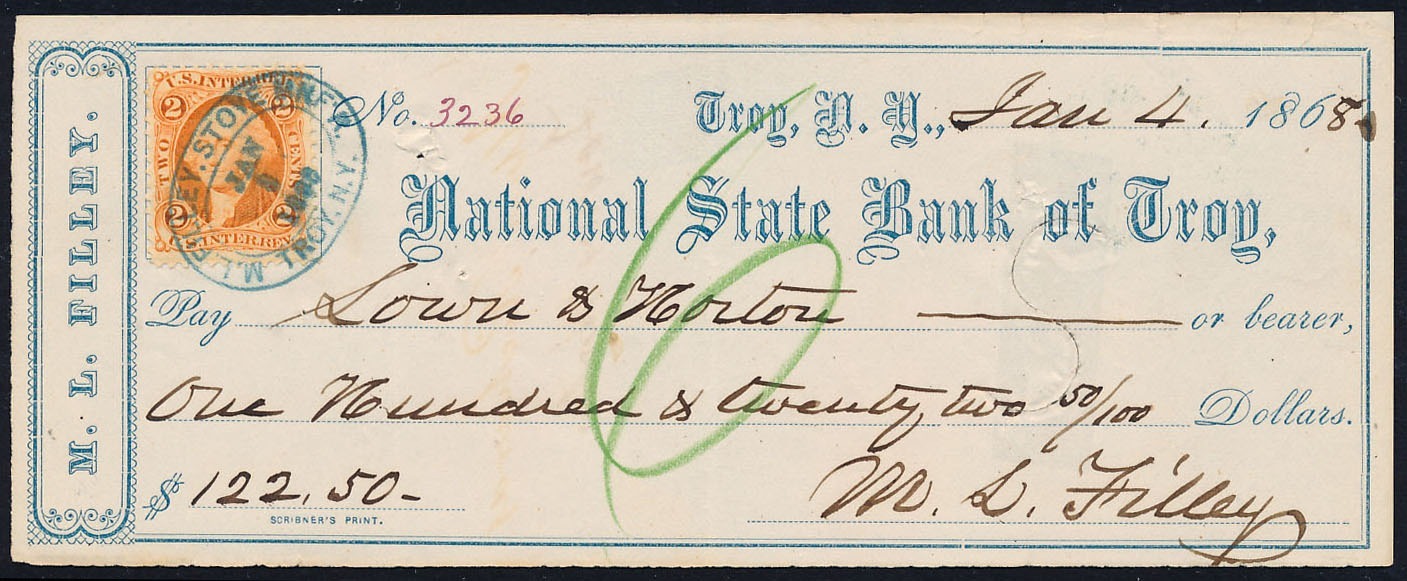 M. L. FILLEY.
U.S. INTER. REV.
2 2
TWO CENTS
2 2
U.S. INTER. REV.
M.L. FILLEY. STOVE MNFR. TROY, N.Y.
JAN
No. 3236
Troy, N. Y., Jan 4. 1868
National State Bank of Troy,
Pay Lown & Norton or bearer,
One Hundred & twenty two 50/100 Dollars.
$ 122.50-
M. L. Filley
SCRIBNER'S PRINT.
6